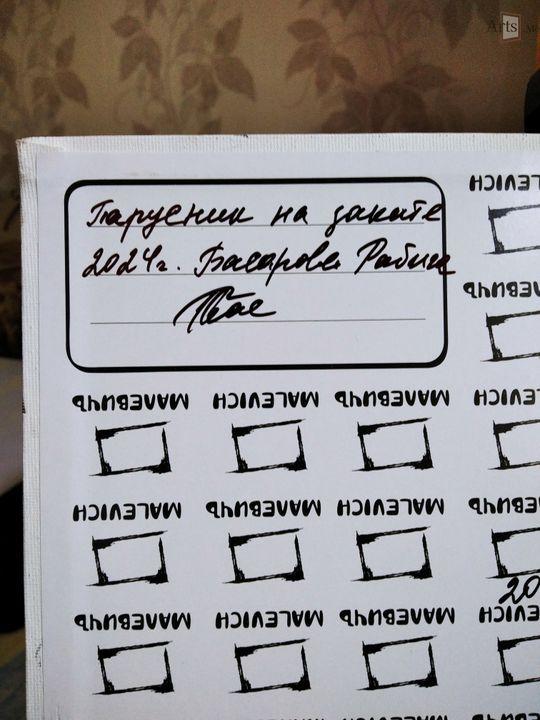 Arts
MALEVICH
Парусник на закате
2024г. Басарова
МАЛЕВИЧЪ
МАЛЕВИЧЪ MALEVICH МАЛЕВИЧЪ MALEVICH
MALEVICH МАЛЕВИЧЪ MALEVICH МАЛЕВИЧЪ
20
МАЛЕВИЧЪ MALEVICH МАЛЕВИЧЪ MALEVICH